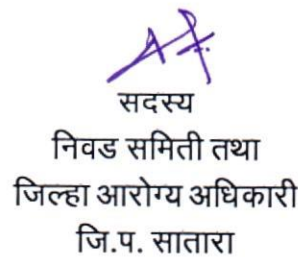 सदस्य
निवड समिती तथा
जिल्हा आरोग्य अधिकारी
जि.प. सातारा